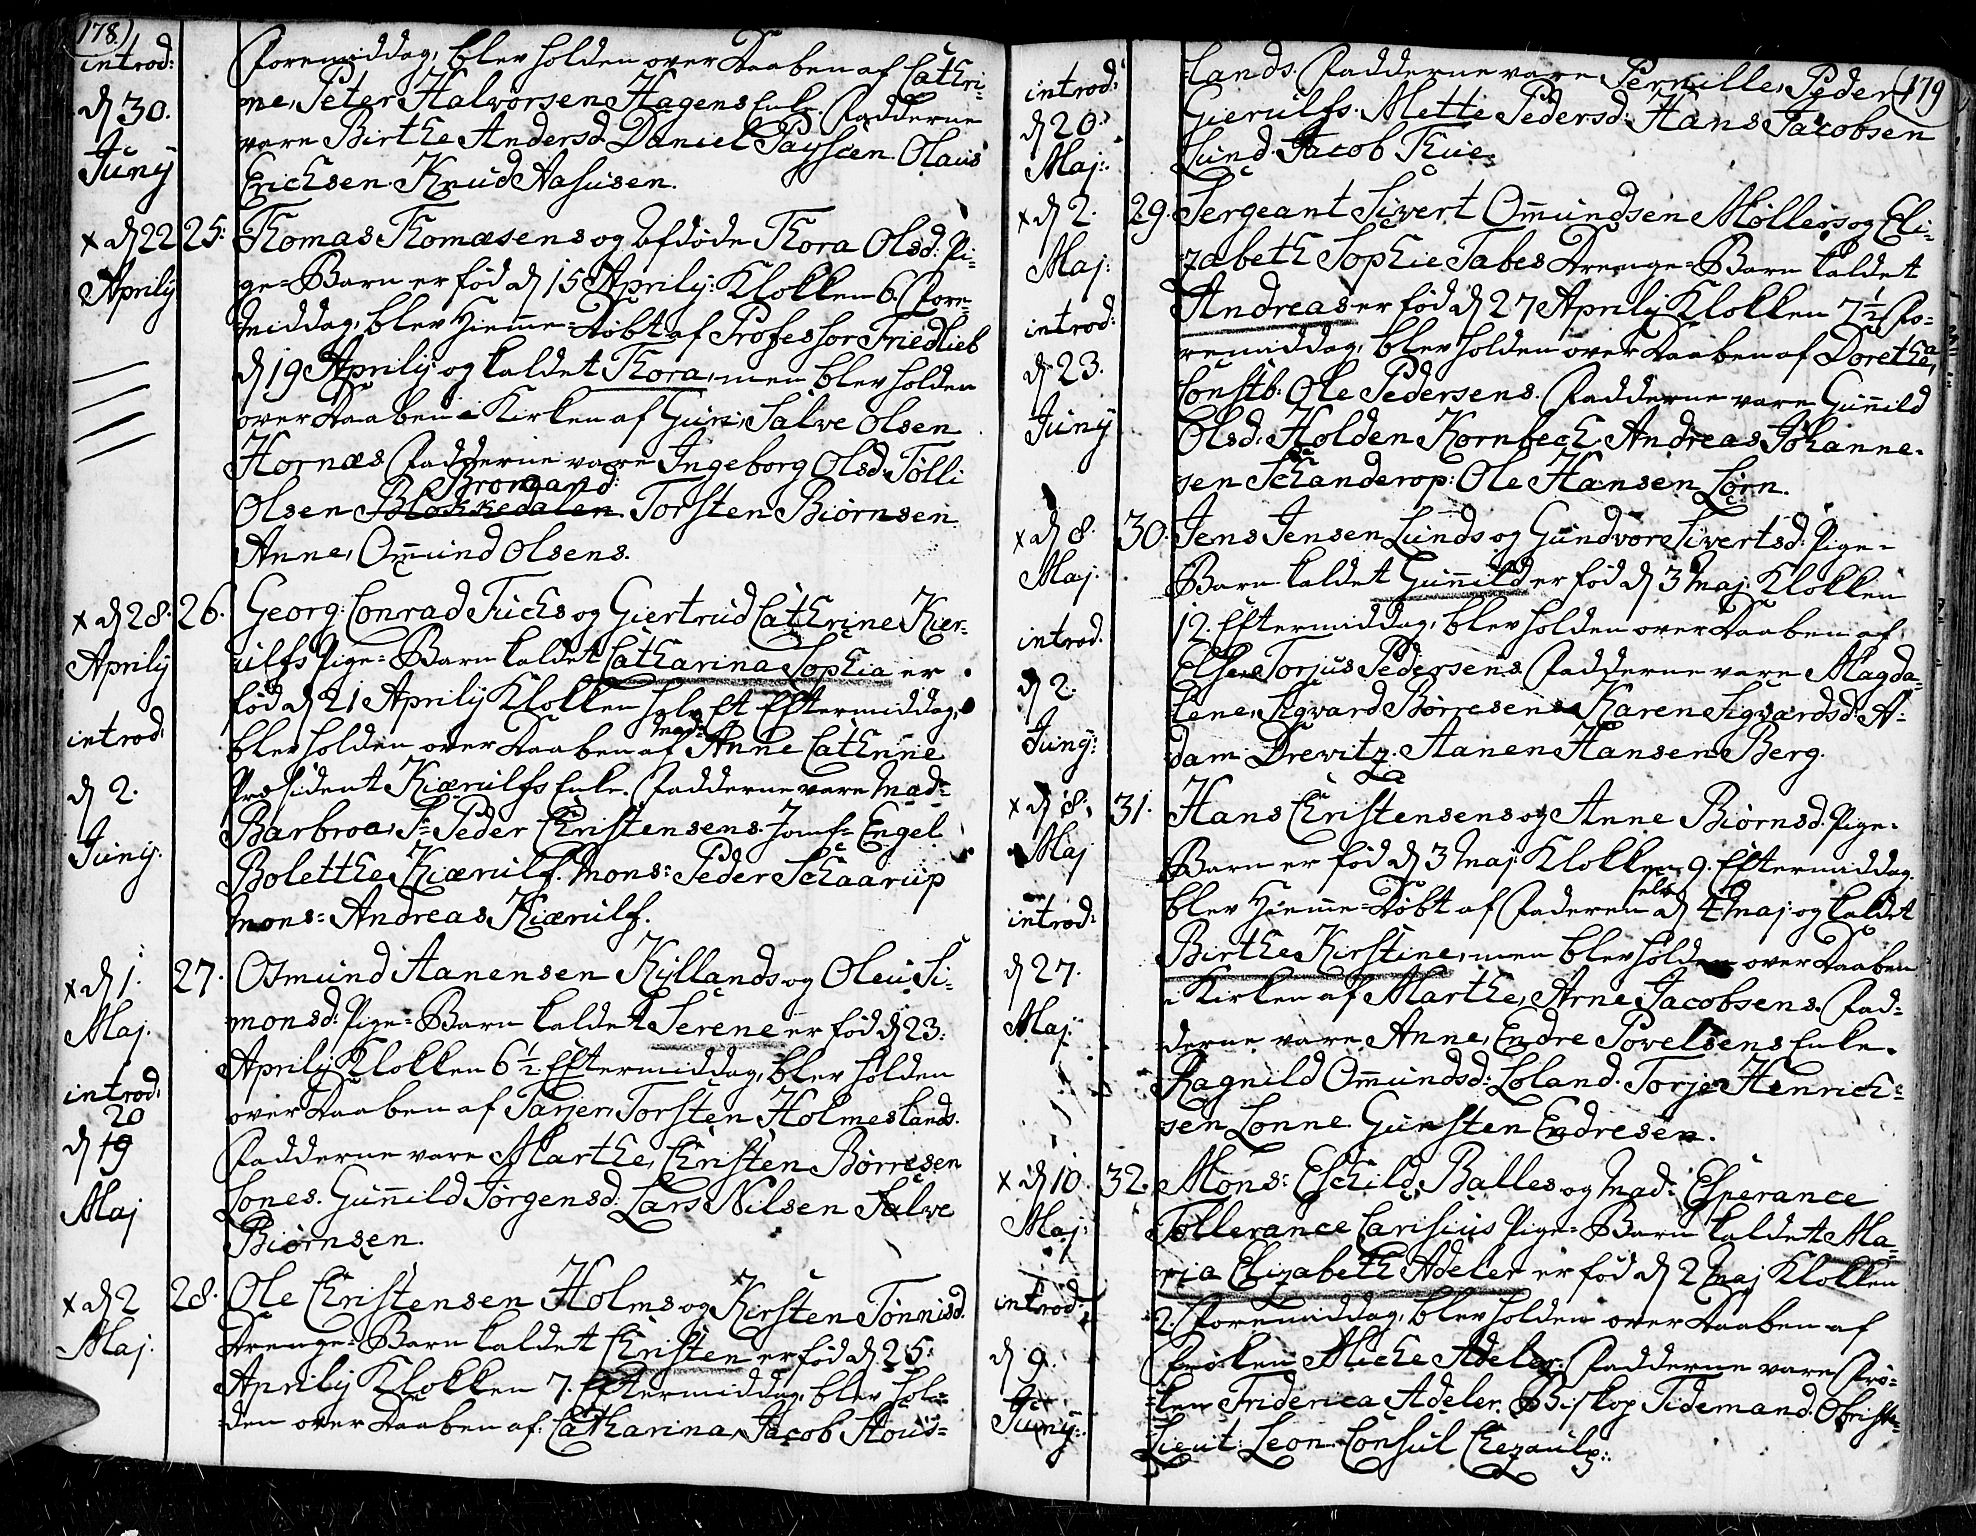 178)
introd:
d 30.
Junÿ
Foremiddag, blev holden over Daaben af Cathri-
ne, Peter Halvorsen Hagens Enke. Fadderne
vare Birthe Andersd: Daniel Olaus
Erichsen. Knud Aasusen.
x d 22 25:
Aprilÿ
Thomas Thomæsens og Afdøde Thora Olsd: Pi-
ge-Barn er fød d 15 Aprilÿ: Klokken 6 Fore-
middag, blev Hiemme-Døbt af Professor Friedlieb
d 19 Aprilÿ og kaldet Thora, men blev holden
over Daaben i Kirken af Guri, Salve Olsen
Hornæs Fadderne vare Ingeborg Olsd: Tølli
Olsen Blokkedalen Torsten Biørnsen
Anne, Omund Olsens.
x d 28. 26.
Aprilÿ
introd:
d 2.
Junÿ.
Georg Conrad Fuchs og Giertrud Cathrine Kier-
ulfs Pige-Barn kaldet Catharina Sophia er
fød d 21 Aprilÿ Klokken halv Et Eftermiddag,
blev holden over Daaben af Mad: Anne Cathrine
Præsident Kiærulfs Enke. Fadderne vare Mad:
Barbroa, Sr Peder Christensens. Jomf: Engel
Bolethe Kiærulf. Mons: Peder Schaarup
Mons: Andreas Kiærulf.
x d 1. 27.
Maj.
introd:
20
d 19
Maj
Osmund Aanensen Kÿllands og Oleu Si-
monsd: Pige-Barn kaldet Serene er fød d 23:
Aprilÿ Klokken 6½ Eftermiddag, blev holden
over Daaben af Tarjer Torsten Holmeslands.
Fadderne vare Marthe, Christen Børresen
Lones. Gunnild Jørgensd: Lars Nilsen Salve
Biørnsen.
x d 2 28.
Maj.
Ole Christensen Holms og Kirsten Tønnisd.
Drenge-Barn kaldet Christen er fød d 25:
Aprilÿ Klokken 7. Eftermiddag, blev hol-
den over Daaben af: Catharina, Jacob Stous-
179
introd:
d 20.
Maj:
lands. Fadderne vare Pernille, Peder
Gierulfs. Mette Pedersd: Hans Jacobsen
Lund. Jacob Thue.
x d 2. 29.
Maj:
introd:
d 23.
Junÿ
Sergeant Sivert Omundsen Møllers og Eli-
zabeth Sophie Tabes Drenge-Barn kaldet
Andreas er fød d 27 Aprilÿ Klokken 7½ Fo-
remiddag, blev holden over Daaben af Dorethea,
Constb: Ole Pedersens. Fadderne vare Gunnild
Olsd: Holden Kornbech Andreas Johanne-
sen Schanderop: Ole Hansen Lørn.
x d 8. 30.
Maj.
introd.
d 2.
Junÿ:
Jens Jensen Lunds og Gundvore Sivertsd: Pige-
Barn kaldet Gunnild er fød d 3 Maj. Klokken
12. Eftermiddag, blev holden over Daaben af
Else, Torjus Pedersens. Fadderne vare Magda-
lene, Sigvard Børresens Karen Sigvardsd: A-
dam Drevitz. Aanen Hansen Berg.
x d 8. 31.
Maj
introd:
d 27.
Maj:
Hans Christensens og Anne Biørnsd: Pige-
Barn er fød d 3 Maj Klokken 9. Eftermiddag.
blev Hiemme-Døbt af Faderen selv d 4 Maj: og kaldet
Birthe Kirstine, men blev holden over Daaben
i Kirken af Marthe, Arne Jacobsens. Fad-
derne vare Anne, Endre Povelsens Enke.
Ragnild Omundsd: Loland. Torjer Henrich-
sen Lonne. Gunsten Endresen.
x d 10. 32.
Maj:
introd:
d 9.
Junÿ:
Mons: Eschild Balles og Mad: Esperance
Tollerance Carisius Pige-Barn kaldet Ma-
ria Elizabeth Adeler er fød d 2 Maj Klokken
2. Foremiddag, blev holden over Daaben af
Frøken Miche Adeler. Fadderne vare Frø-
ken Friderica Adeler. Biskop Tidemand. Obriste-
Lieut: Leon. Consul Chezaulx: